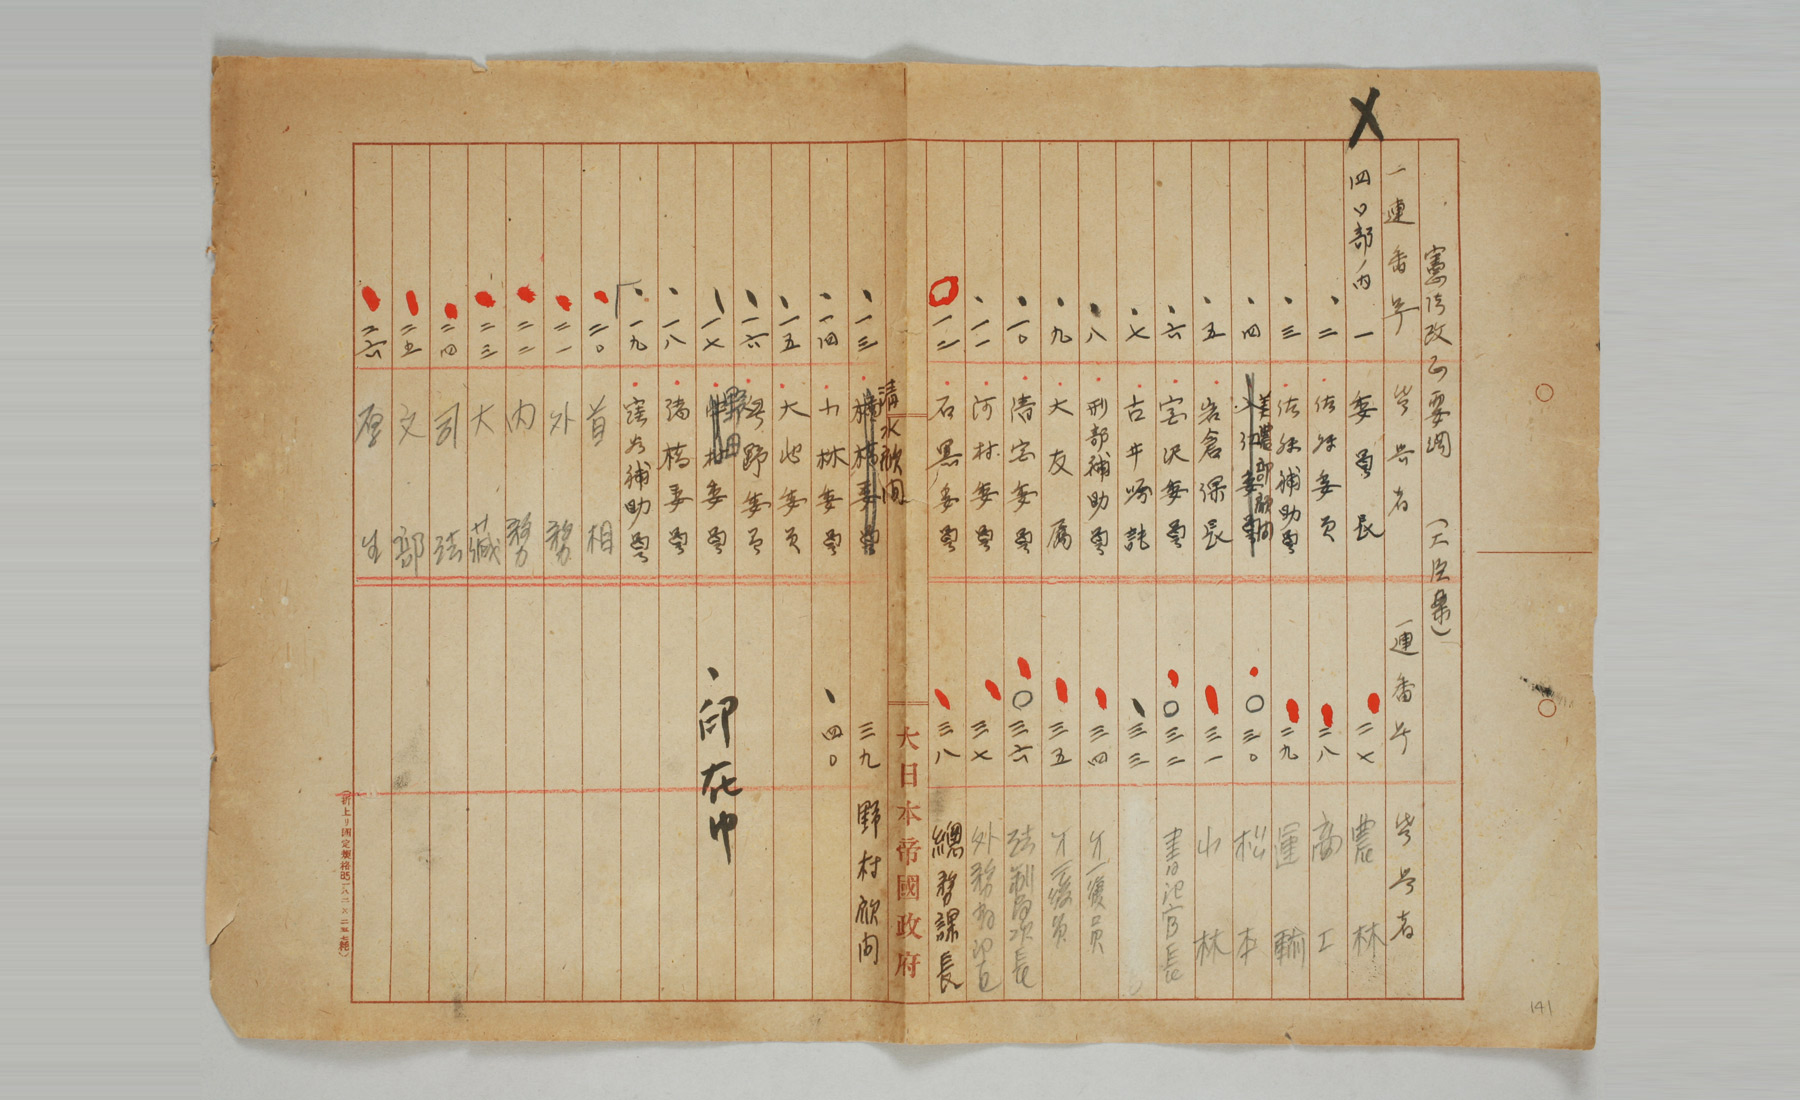 憲法改正要綱 (大臣案)
一連番号 受書者 一連番号 受書者
四〇部ノ内
一 委員長
二 佐々委員
三 佐藤補助員
四 美濃部顧問
五 岩倉課長
六 宮沢委員
七 古井嘱託
八 刑部補助員
九 大友属
一〇 清宮委員
一一 河村委員
一二 石黒委員
二七 農林
二八 商工
二九 運輸
三〇 松本
三一 小林
三二 書記官長
三三
三四 才一復員
三五 才二復員
三六 法制局次長
三七
三八 總務課長
大日本帝國政府
清水顧問
一三
一四 小林委員
一五 大池委員
一六 奥野委員
一七 野田
一八 諸橋委員
一九 窪谷補助員
二〇 首相
二一 外務
二二 内務
二三 大藏
二四 司法
二五 文部
二六 厚生
三九 野村顧問
四〇
印在中
141